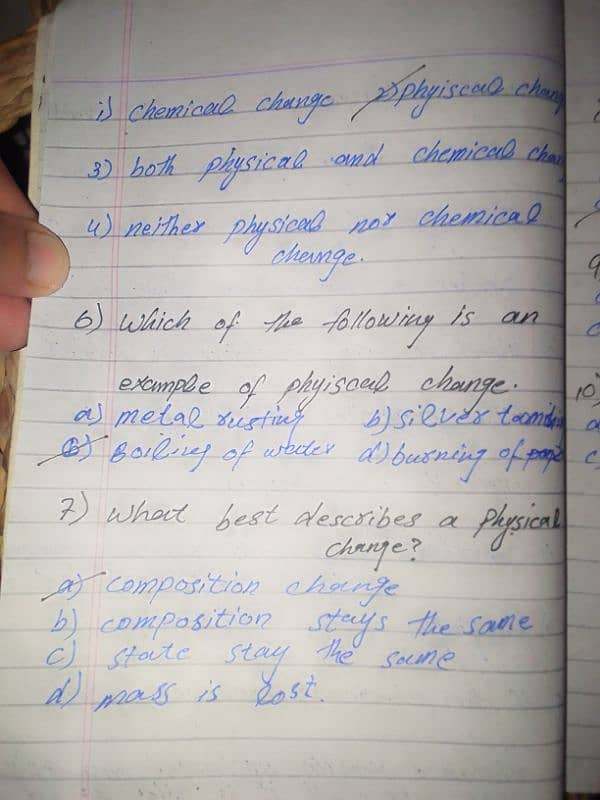 i) chemical change 2) phyiscal chang
3) both physical and chemical cha
4) neither physical nor chemical
change.
6) Which of the following is an
example of phyiscal change.
a) metal rusting b) silver
c) Boiling of water d) burning of
7) What best describes a physical
change?
a) composition change
b) composition stays the same
c) state stay the same
d) mass is lost.
10)